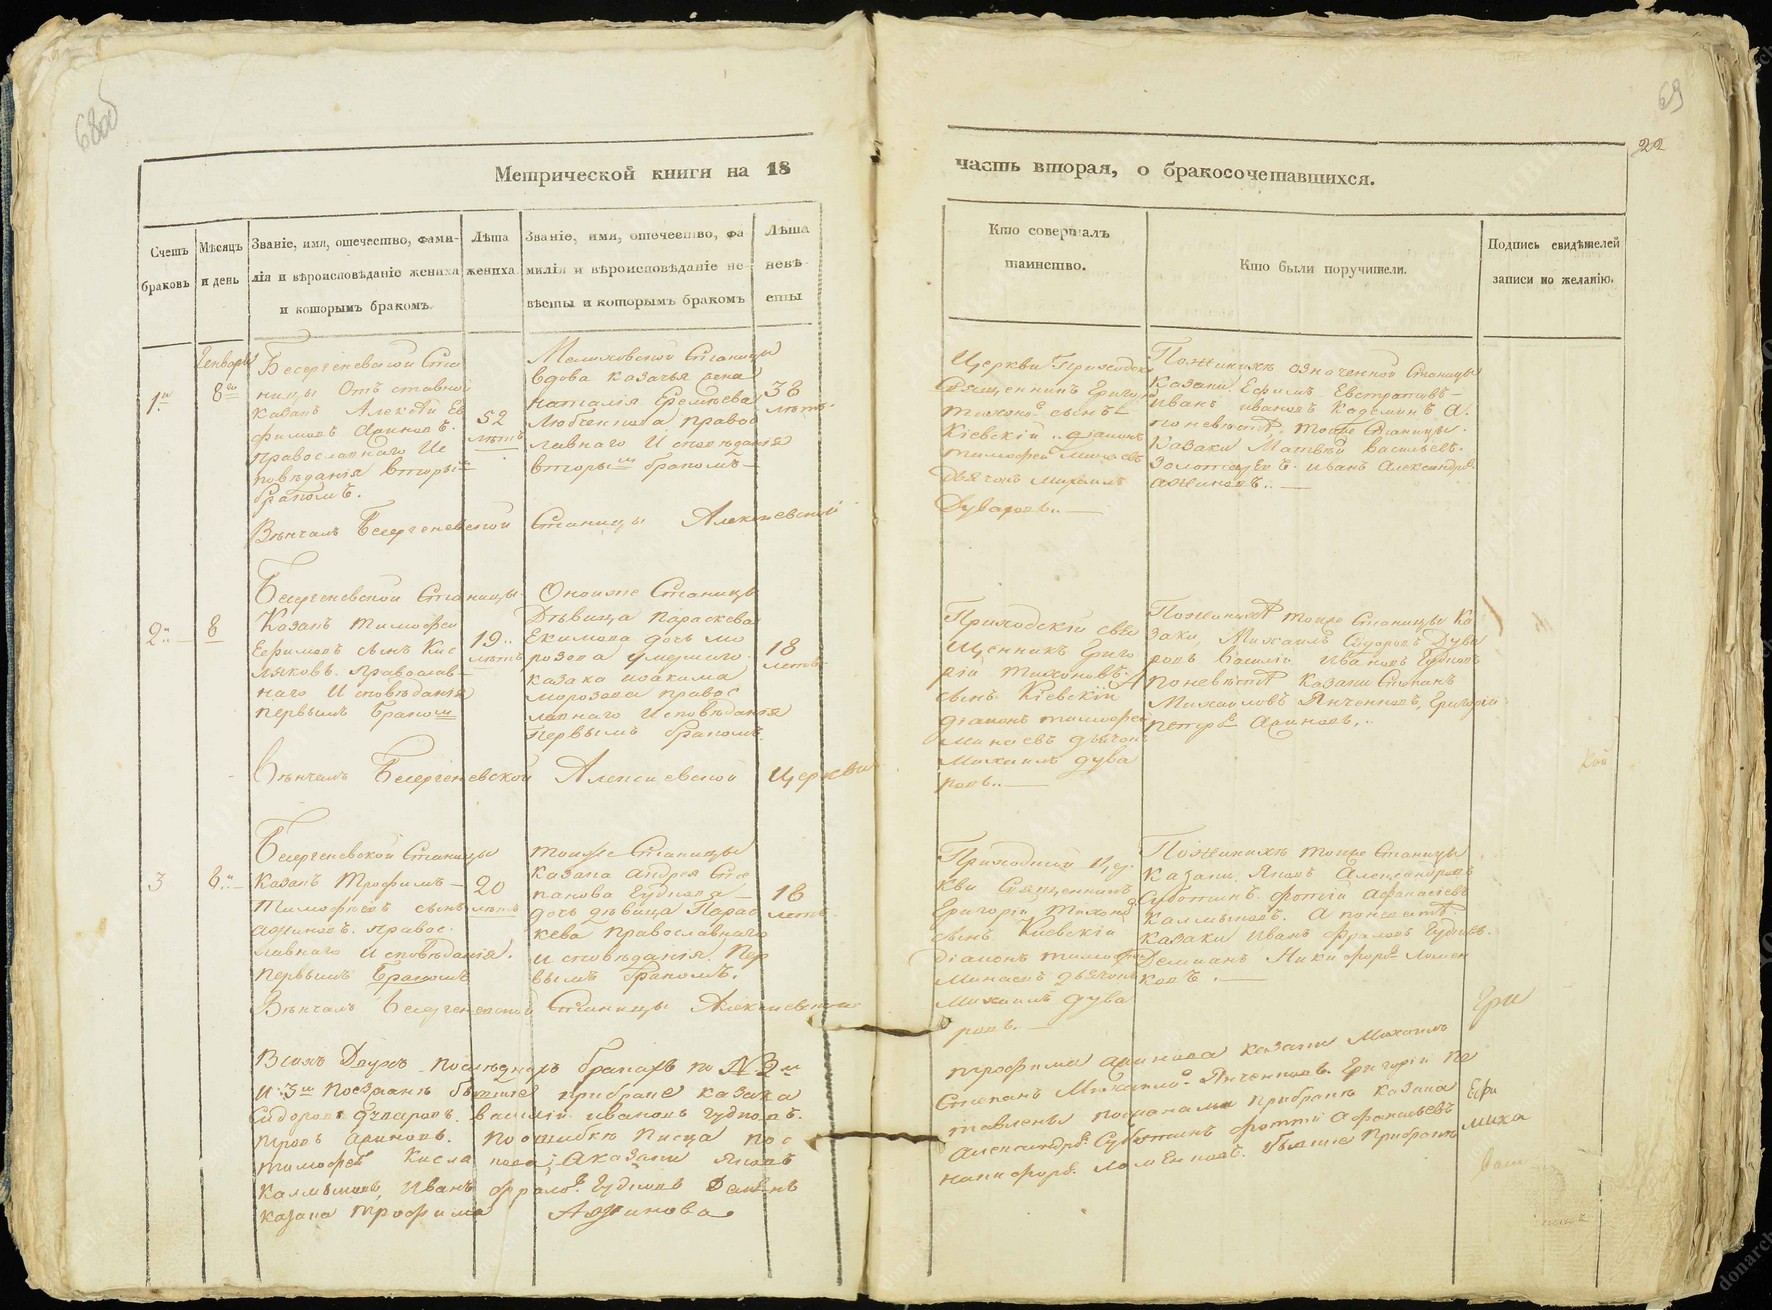 680б
69
22
Метрической книги на 18
часть вторая, о бракосочетавшихся.
Счетъ браковъ
Мѣсяцъ и день
Званіе, имя, отечество, фами-
лія и вѣроисповѣданіе жениха
и которымъ бракомъ.
Лѣта
жениха
Званіе, имя, отечество, фа
милія и вѣроисповѣданіе не-
вѣсты и которымъ бракомъ
Лѣта
невѣ-
сты
Кто совершалъ
таинство.
Кто были поручители.
Подпись свидѣтелей
записи по желанію.
Генваря
1й
8го
Бесергеневской Ста
ницы Отставной
Казакъ Алексѣй Ев
фимовъ Ажиновъ.
Православнаго Ис
повѣданія вторым
бракомъ.
52
лѣтъ
Мелиховской Станицы
вдова казачья жена
Наталія
Православнаго Исповѣданія
вторым бракомъ
38
лѣтъ.
Церкви Приходски
Священникъ Григор
Тихоно сынъ
Кіевскій діаконъ
Тимофей Минаевъ
Дьячокъ Михаилъ
Дуваровъ..
По женихѣ означенной Станицы
Казаки Ефимъ Евстратовъ
Иванъ Ивановъ А
по невѣстѣ. тойже Станицы.
Казаки Матвѣй Васильевъ.
Золотаревъ. Иванъ Александро
Ажиновъ..
Вѣнчалъ Бесергеневской Станицы Алексіевской
2й
8
Бесергеневской Станицы
Казакъ Тимофей
Ефимовъ сынъ Кис
ляковъ. Православ
наго Исповѣданія
первымъ браком
19..
лѣтъ
Оной же Станицы
Дѣвица Параскева
Екимова дочь мо
розова умершаго
казака Иоакима
Морозова правос
лавнаго Исповѣданія
первымъ бракомъ.
18
летъ
Приходскій свя
щенникъ Григо
рій Тихоновъ
сынъ Кіевскій
діаконъ тимофей
Минаевъ дьячок
Михаилъ дува
ровъ..
По женихѣ тойже Станицы Ка
заки, Михаилъ Сидоровъ Дува
ровъ Василій Ивановъ Гудковъ
по невѣстѣ Казаки Степанъ
Михайловъ Янченковъ, Григорій
Петро Ажиновъ..
Вѣнчалъ Бесергеневской Алексіевской Церкви
3
8..
Бесергеневской Станицы
Казакъ Трофимъ
Тимофѣевъ сынъ
Ажиновъ. Правос
лавнаго Исповѣданія.
первымъ бракомъ
20
лѣтъ
тойже Станицы
казака Андрея Сте
панова Гуднова
дочь дѣвица Парас
кева Православнаго
исповѣданія. Пер
вымъ бракомъ.
18
летъ
Приходский Цер.
кви Священникъ
Григорій Тихоно
сынъ Кіевскій
діаконъ тимофей
Минаевъ дьячокъ
Михаилъ дува
ровъ.
По женихѣ тойже Станицы
Казаки. Яковъ Александровъ
Суботинъ. Фотій Афанасіевъ
Калмыковъ. А по невѣстѣ.
Казаки Иванъ Фроловъ Гудковъ.
Демианъ Никифоро Ломен
ковъ.
Вѣнчалъ Бесергеневской Станицы Алексіевской
Всихъ Двухъ последнихъ бракахъ по № 2м
и 3м Поезжане бывшие прибраке казака
Сидоровъ дуваровъ. Василій Ивановъ Гудковъ.
тровъ Ажиновъ. По ошибкѣ Писца пос
тимофея Кислякова; Аказаки Яковъ
Калмыковъ, Иванъ Фроло Гудковъ Демьянъ
казака Трофима Ажинова
Трофима Ажинова казаки Михаилъ
Степанъ Михайло Янченковъ. Григорій Пе
тавлены поезжанами прибракѣ казака
Александро Суботинъ Фотій Афанасьевъ
Никифоро. Ломенковъ. бывшие Прибракѣ